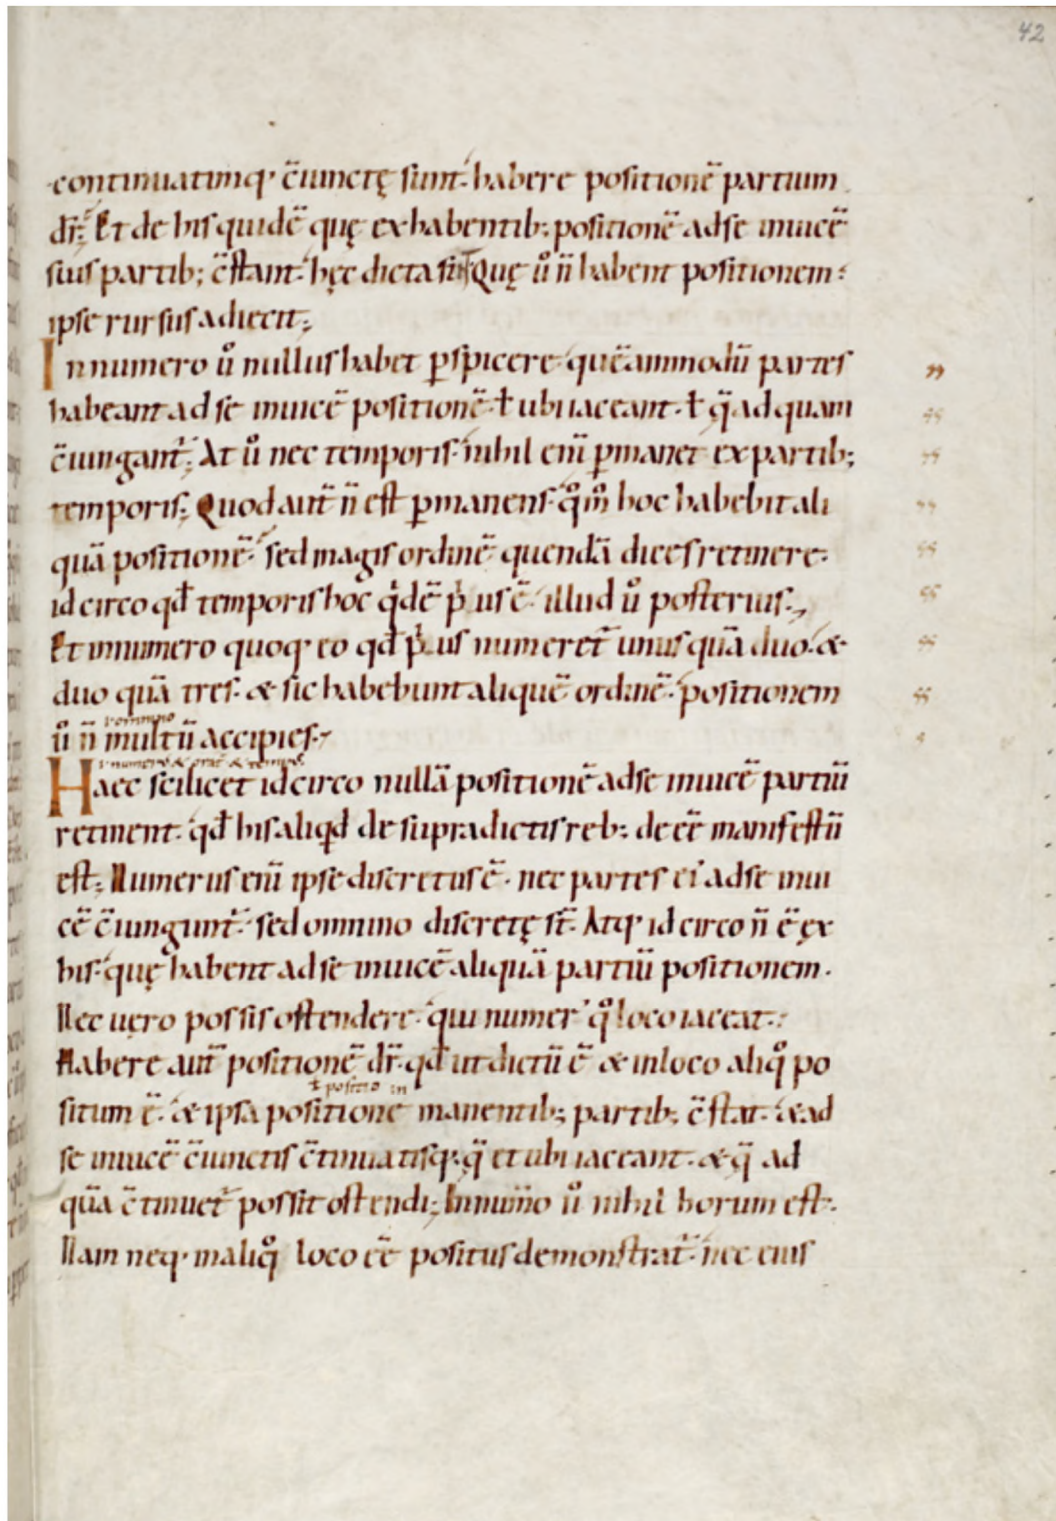 42
continuatimq· c̄iunctę sunt· habere positionē partium
dr̄; Et de his quidē quę ex habentib; positionē ad se inuicē
suis partib; c̄stant· hęc dicta sint· Quę ů n̄ habent positionem·
ipse rursus adiecit;
In numero ů nullus habet ꝑspicere· quēammodū partes
habeant ad se inuicē positionē· ł ubi iaceant· ł q̄ ad quam
c̄iungant̄; At ů nec temporis· nihil enī ꝑmanet ex partib;
temporis; Quod aut̄ n̄ est ꝑmanens· qͦm̊ hoc habebit ali
quā positionē· sed magis ordinē quendā dices retinere·
id circo qđ temporis hoc qͥdē pͥus ē· illud ů posterius·
Et innumero quoq· eo qđ pͥus numeret̄ unus quā duo· &
duo quā tres· & sic habebunt aliquē ordinē· positionem
ł omnino
ů n̄ multū accipies·
ſ numerus & orat̄ & tempus
Haec scilicet id circo nullā positionē ad se inuicē partiū
retinent· qđ his aliqđ de supradictis reb; deēē manifestū
est; Numerus enī ipse discretus ē· nec partes ei ad se inui
cē c̄iungunt̄· sed omnino discretę st̄· Atq· id circo n̄ ē ex
his· quę habent ad se inuicē aliquā partiū positionem·
Nec uero possis ostendere· qui numer' qͦ loco iaceat·
Habere aut̄ positionē dr̄· qđ ut dictū ē & in loco aliqͦ po
ł positio in
situm ē· & ipsa positione manentib; partib; c̄stat· & ad
se inuicē c̄iunctis c̄tinuatisq· q̄ et ubi iaceant· & q̄ ad
quā c̄tinuet̄ possit ostendi; In num̄o ů nihil horum est·
Nam neq· in aliqͦ loco ēē positus demonstrat̄· nec eius